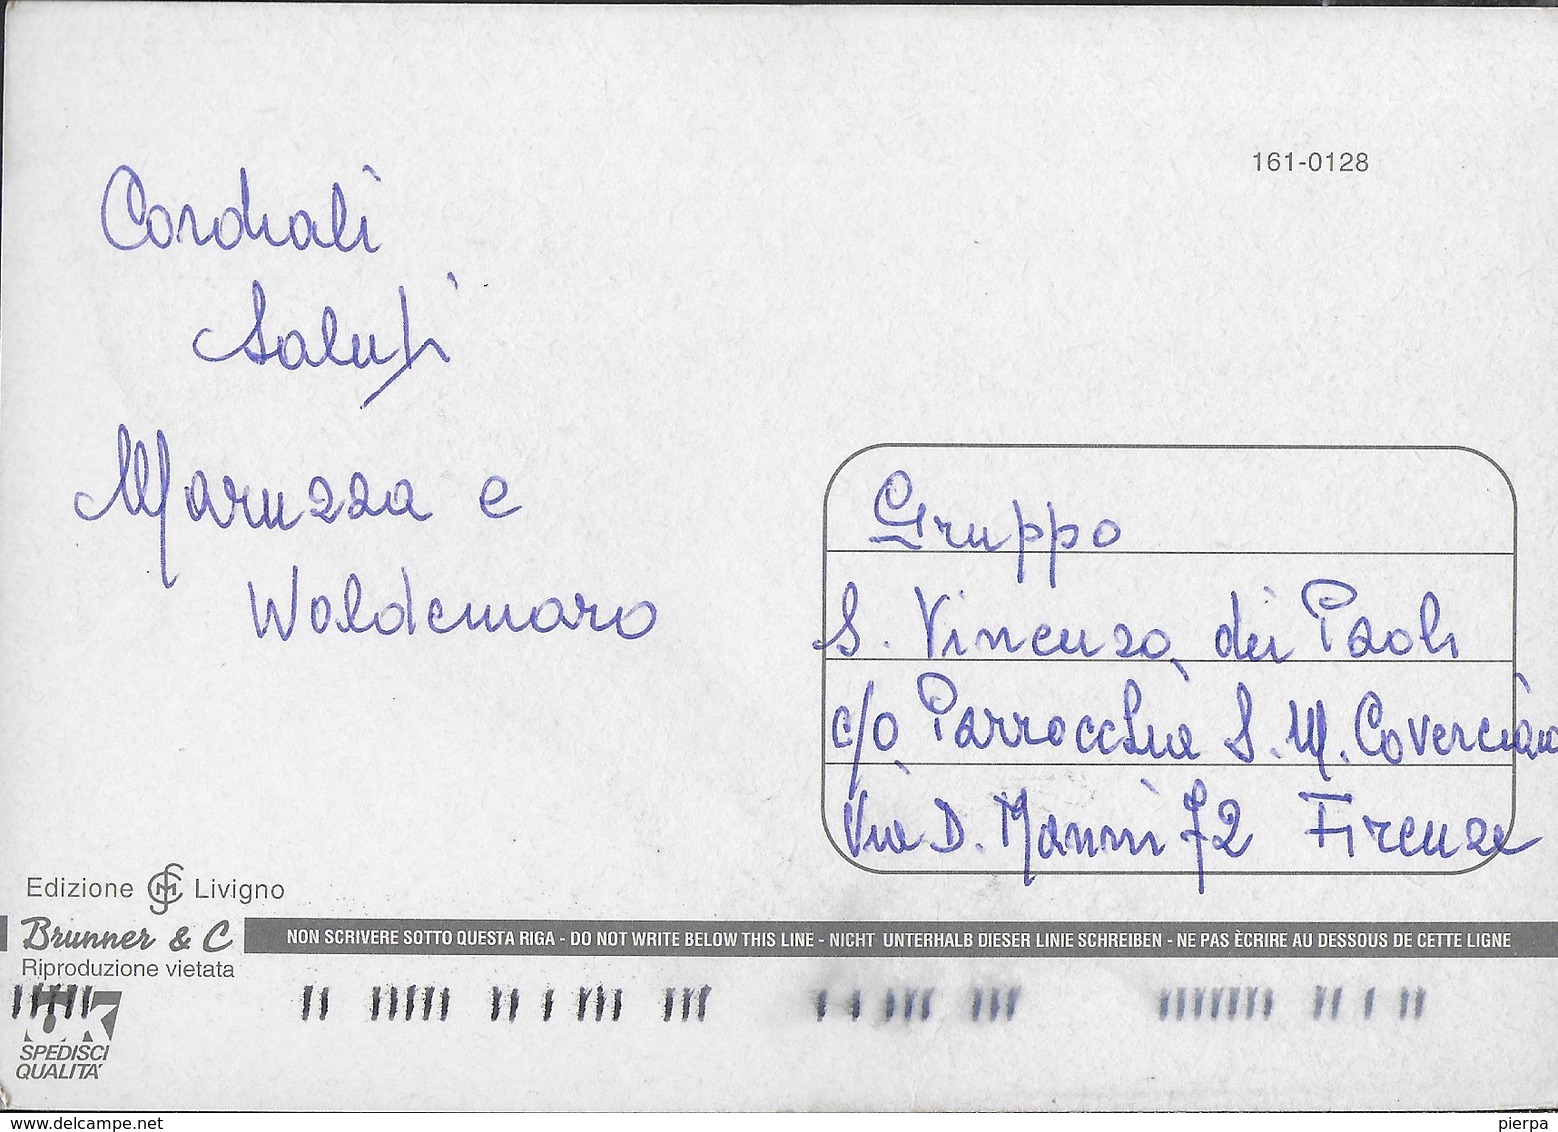 161-0128
Cordiali
Saluti
Maruzza e
Woldemaro
Gruppo
S. Vincenzo dei Paoli
c/o Parrocchia S. M. Coverciano
Via D. Manni 72 Firenze
Edizione Livigno
Brunner & C
NON SCRIVERE SOTTO QUESTA RIGA - DO NOT WRITE BELOW THIS LINE - NICHT UNTERHALB DIESER LINIE SCHREIBEN - NE PAS ÈCRIRE AU DESSOUS DE CETTE LIGNE
Riproduzione vietata
OK
SPEDISCI
QUALITA'
www.delcampe.net
pierpa